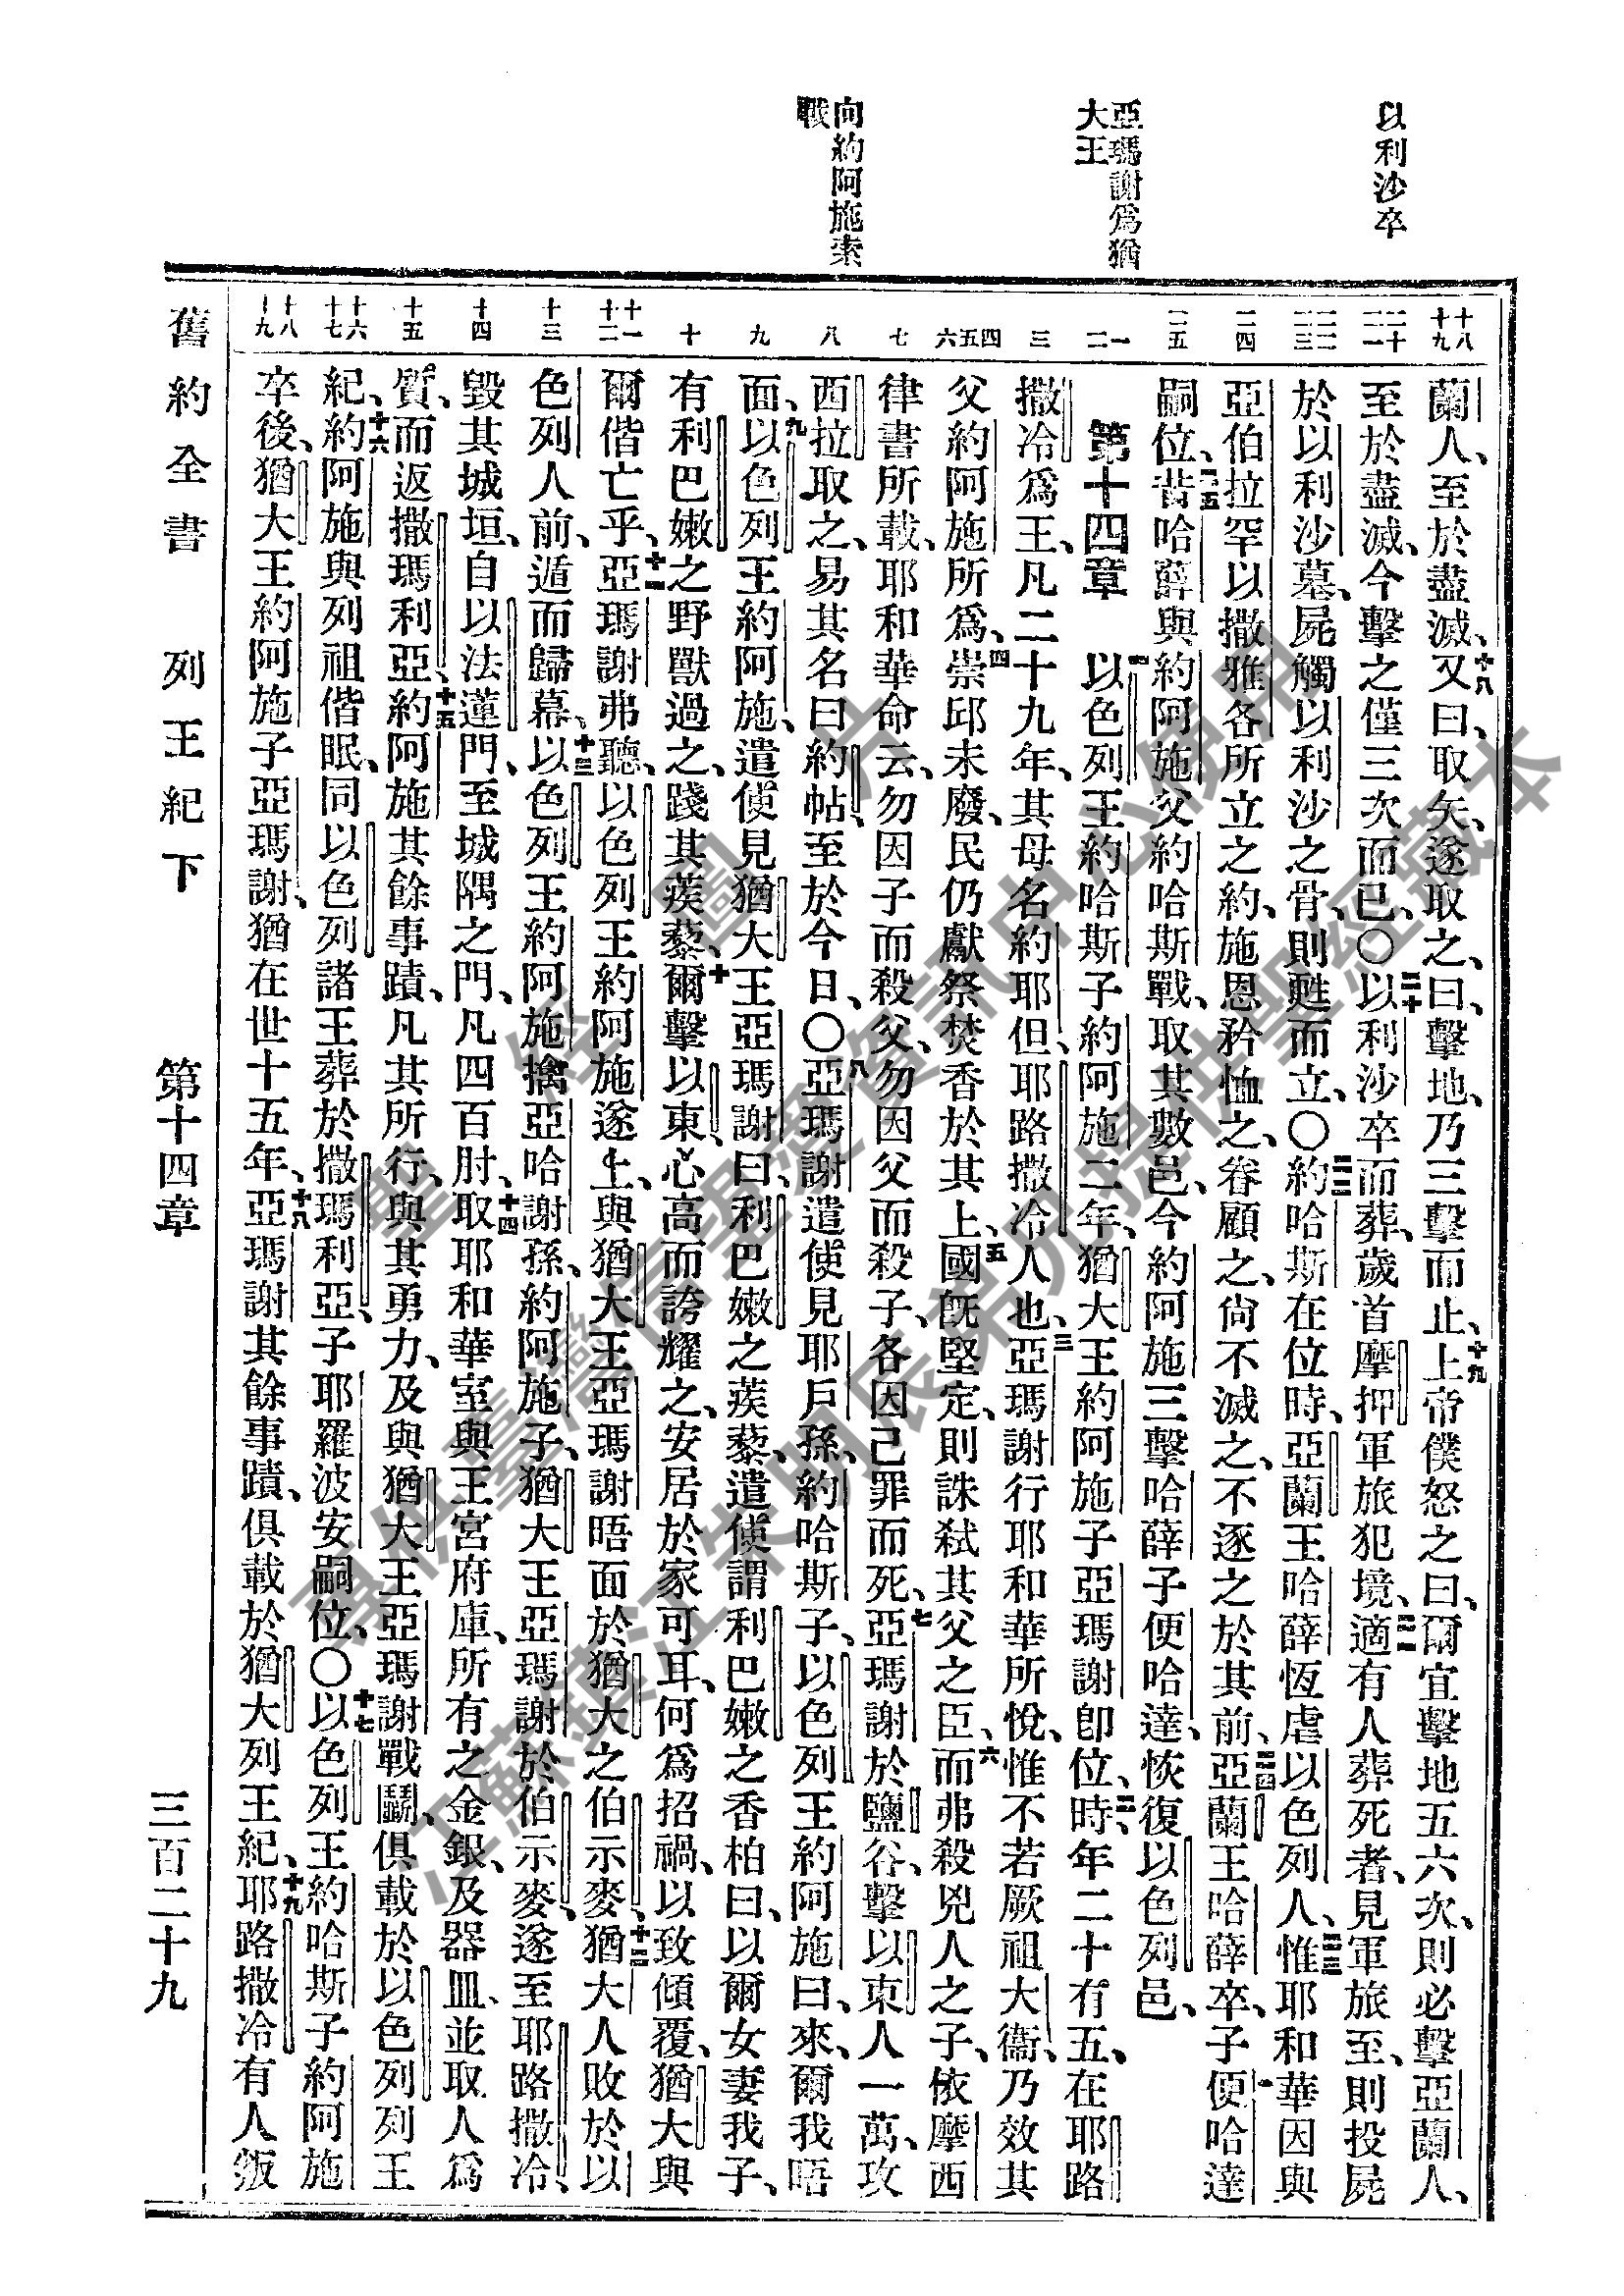 以利沙卒
亞瑪謝爲猶
大王
向約阿施索
戰
十八 十九
二十 二一
二二 二三
二四
二五
一 二
三
四 五 六
七
八
九
十
十一 十二
十三
十四
十五
十六 十七
十八 十九
蘭人、至於盡滅、十八又曰、取矢、遂取之、曰、擊地、乃三擊而止、十九上帝僕怒之曰、爾宜擊地五六次、則必擊亞蘭人、
至於盡滅、今擊之僅三次而已、〇二十以利沙卒而葬、歲首摩押軍旅犯境、二一適有人葬死者、見軍旅至、則投屍
於以利沙墓、屍觸以利沙之骨、則甦而立、〇二二約哈斯在位時、亞蘭王哈薛恆虐以色列人、二三惟耶和華因與
亞伯拉罕以撒雅各所立之約、施恩矜恤之、眷顧之、尚不滅之、不逐之於其前、二四亞蘭王哈薛卒、子便哈達
嗣位、二五昔哈薛與約阿施父約哈斯戰、取其數邑、今約阿施三擊哈薛子便哈達、恢復以色列邑、
第十四章 一以色列王約哈斯子約阿施二年、猶大王約阿施子亞瑪謝卽位、二時年二十有五、在耶路
撒冷爲王、凡二十九年、其母名約耶但、耶路撒冷人也、三亞瑪謝行耶和華所悅、惟不若厥祖大衞、乃效其
父約阿施所爲、四崇邱未廢、民仍獻祭焚香於其上、五國旣堅定、則誅弒其父之臣、六而弗殺兇人之子、依摩西
律書所載、耶和華命云、勿因子而殺父、勿因父而殺子、各因己罪而死、七亞瑪謝於鹽谷、擊以東人一萬、攻
西拉取之、易其名曰約帖、至於今日、〇八亞瑪謝遣使見耶戶孫、約哈斯子、以色列王約阿施曰、來、爾我晤
面、九以色列王約阿施、遣使見猶大王亞瑪謝曰、利巴嫩之蒺藜、遣使謂利巴嫩之香柏曰、以爾女妻我子、
有利巴嫩之野獸過之、踐其蒺藜、十爾擊以東、心高而誇耀之、安居於家可耳、何爲招禍、以致傾覆、猶大與
爾偕亡乎、十一亞瑪謝弗聽、以色列王約阿施遂上、與猶大王亞瑪謝晤面於猶大之伯示麥、十二猶大人敗於以
色列人前、遁而歸幕、十三以色列王約阿施擒亞哈謝孫、約阿施子、猶大王亞瑪謝於伯示麥、遂至耶路撒冷、
毀其城垣、自以法蓮門、至城隅之門、凡四百肘、十四取耶和華室與王宮府庫、所有之金銀、及器皿、並取人爲
質、而返撒瑪利亞、十五約阿施其餘事蹟、凡其所行、與其勇力、及與猶大王亞瑪謝戰鬭、俱載於以色列列王
紀、十六約阿施與列祖偕眠、同以色列諸王葬於撒瑪利亞、子耶羅波安嗣位、〇十七以色列王約哈斯子約阿施
卒後、猶大王約阿施子亞瑪謝、猶在世十五年、十八亞瑪謝其餘事蹟、俱載於猶大列王紀、十九耶路撒冷有人叛
舊約全書 列王紀下 第十四章 三百二十九
聖經圖片
專供臺灣信望愛資訊中心使用
江蘇鎮江朱明辰弟兄提供聖經藏本